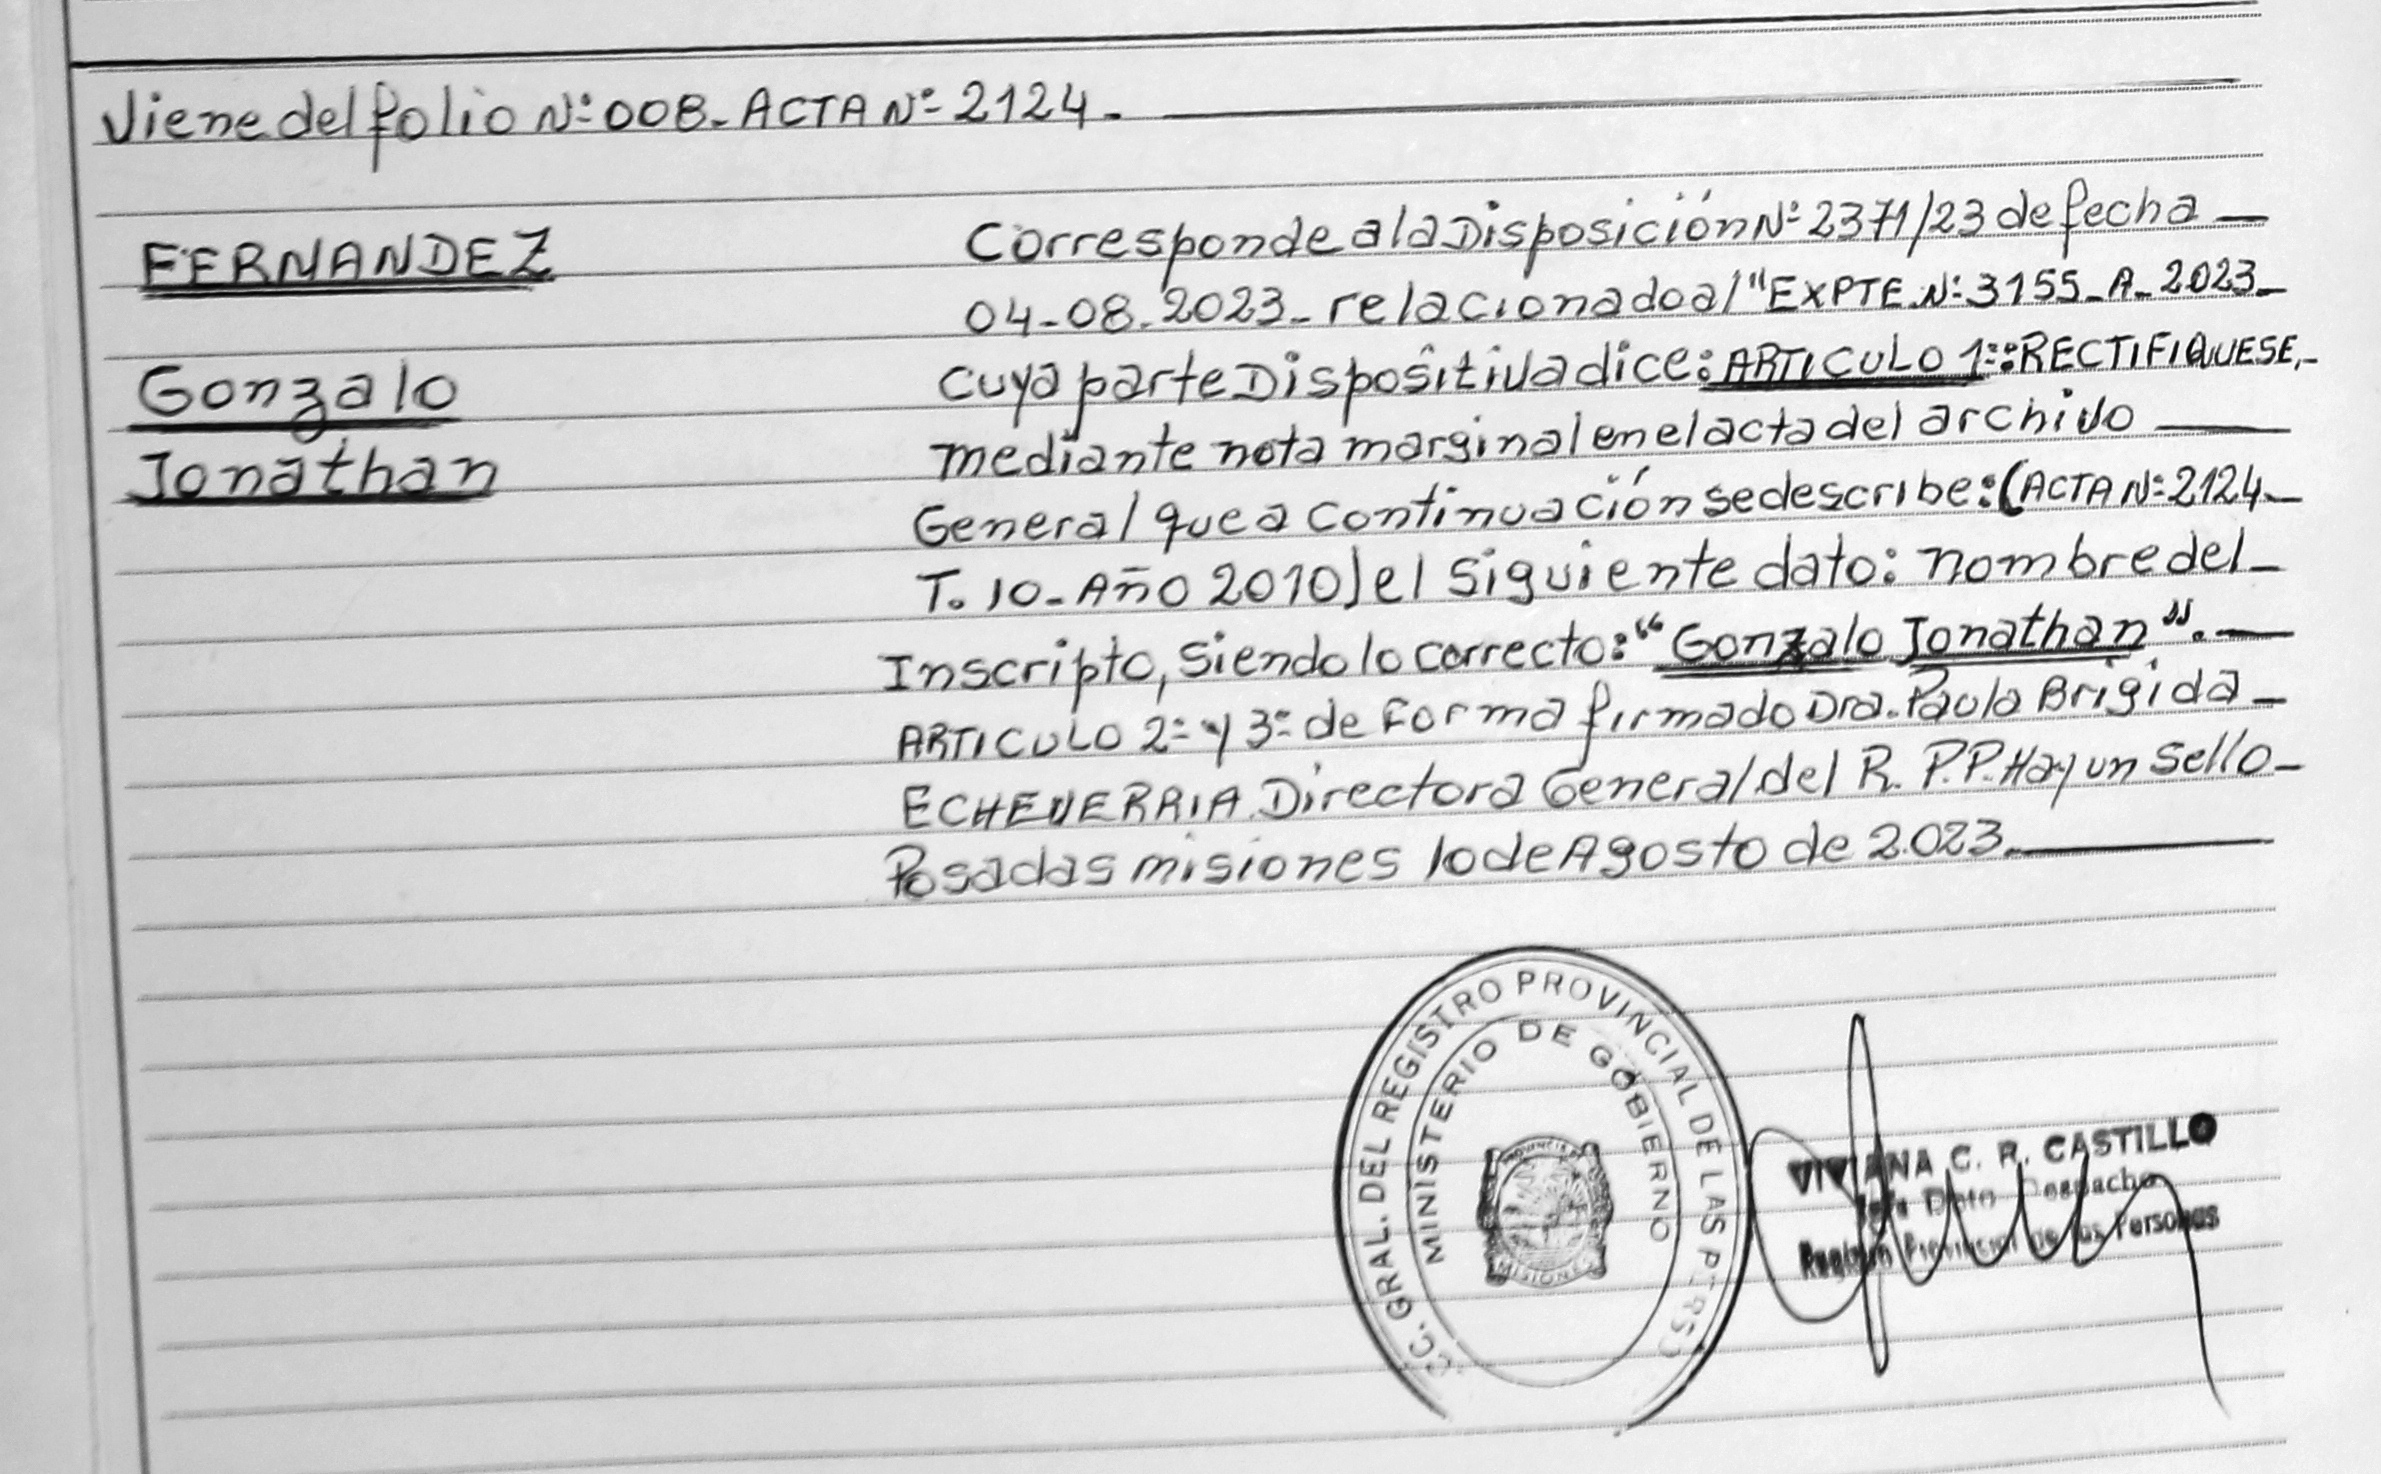 Viene del folio Nº 008_ ACTA Nº 2124.
FERNANDEZ
Gonzalo
Jonathan
Corresponde a la Disposición Nº 2371/23 de fecha
04-08-2023_ relacionado al "EXPTE. Nº 3155_A_2023_
Cuya parte Dispositiva dice: ARTICULO 1º: RECTIFIQUESE,_
mediante nota marginal en el acta del archivo
General que a Continuación se describe: (ACTA Nº 2124_
T. 10_ AÑO 2010) el siguiente dato: nombre del_
Inscripto, siendo lo correcto: "Gonzalo Jonathan".
ARTICULO 2º y 3º de Forma firmado Dra. Paola Brígida_
ECHEVERRIA Directora General del R. P.P. Hay un Sello_
Posadas misiones 10 de Agosto de 2.023.
GRAL. DEL REGISTRO PROVINCIAL DE LAS
MINISTERIO DE GOBIERNO
PROVINCIA
MISIONES
VIVIANA C. R. CASTILLO
Jefa Dpto Despacho
Registro Provincial de las Personas